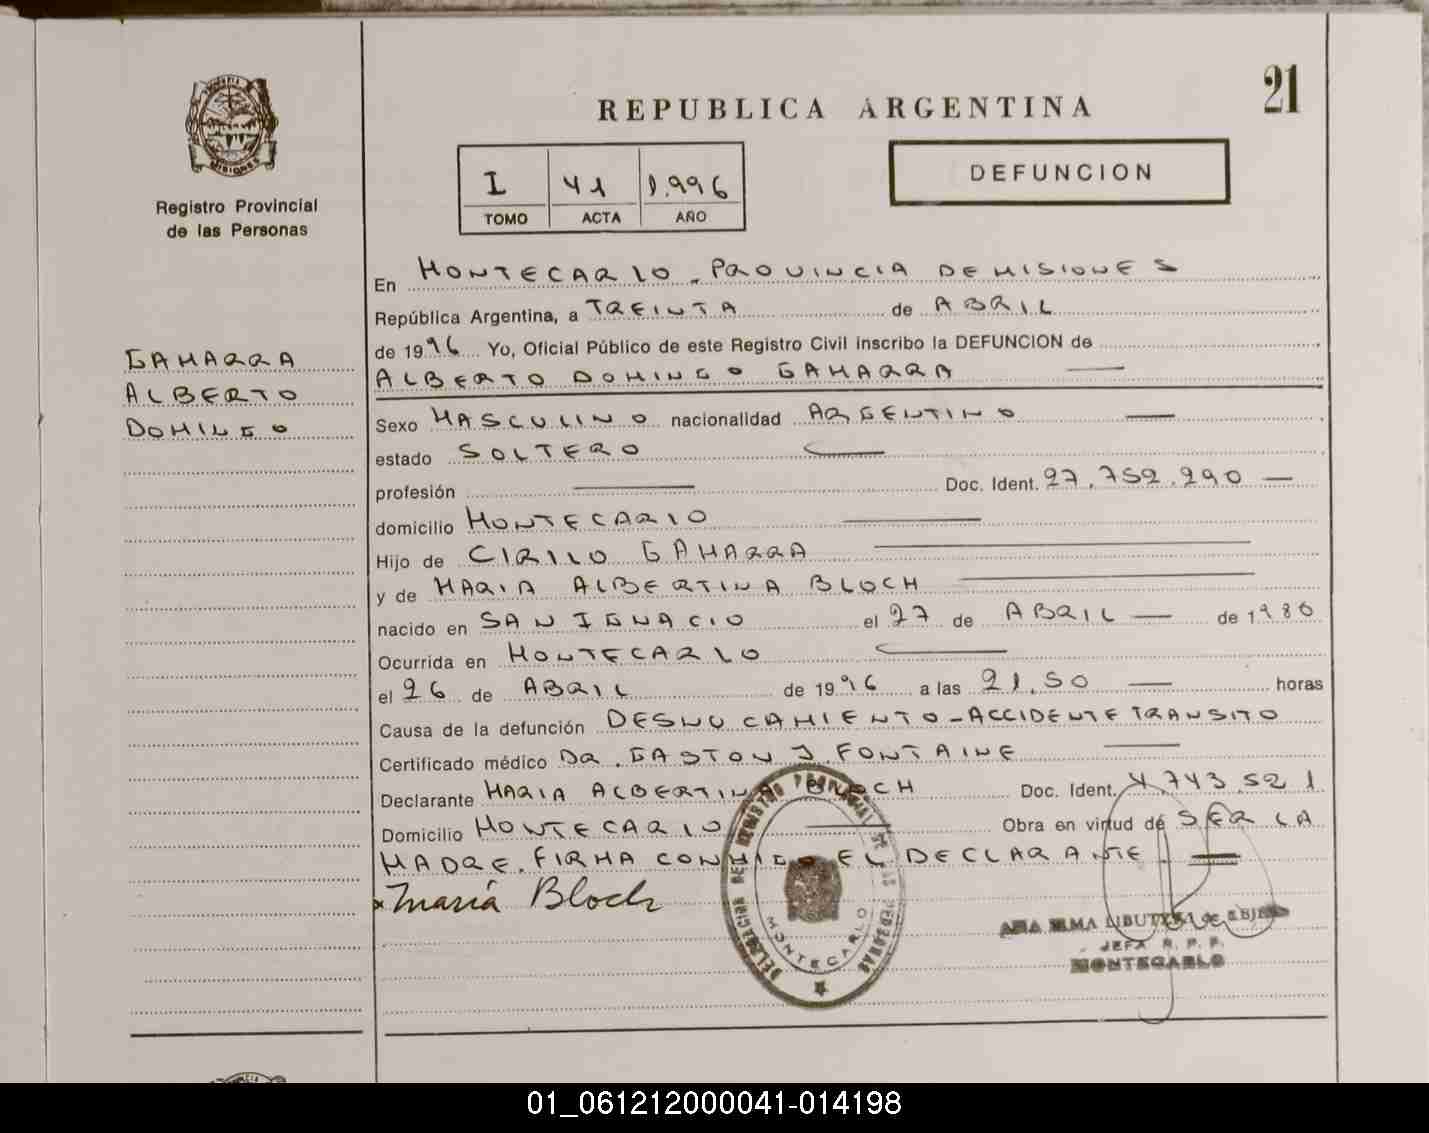 21
REPUBLICA ARGENTINA
DEFUNCION
I 41 1.996
TOMO ACTA AÑO
MISIONES
Registro Provincial
de las Personas
GAMARRA
ALBERTO
DOMINGO
En MONTECARLO. PROVINCIA DE MISIONES
República Argentina, a TREINTA de ABRIL
de 1996 Yo, Oficial Público de este Registro Civil inscribo la DEFUNCION de
ALBERTO DOMINGO GAMARRA
Sexo MASCULINO nacionalidad ARGENTINO
estado SOLTERO
profesión Doc. Ident. 27.752.290
domicilio MONTECARLO
Hijo de CIRILO GAMARRA
y de MARIA ALBERTINA BLOCH
nacido en SAN IGNACIO el 27 de ABRIL de 1980
Ocurrida en MONTECARLO
el 26 de ABRIL de 1996 a las 21,50 horas
Causa de la defunción DESNUCAMIENTO-ACCIDENTE TRANSITO
Certificado médico DR. GASTON J. FONTAINE
Declarante MARIA ALBERTINA BLOCH Doc. Ident. 4.743.521
Domicilio MONTECARLO Obra en virtud de SER LA
MADRE. FIRMA CONMIGO EL DECLARANTE
x María Bloch
REGISTRO PROVINCIAL DE LAS PERSONAS
MONTECARLO
ANA ELMA
JEFA R. P. P.
MONTECARLO
01_061212000041-014198